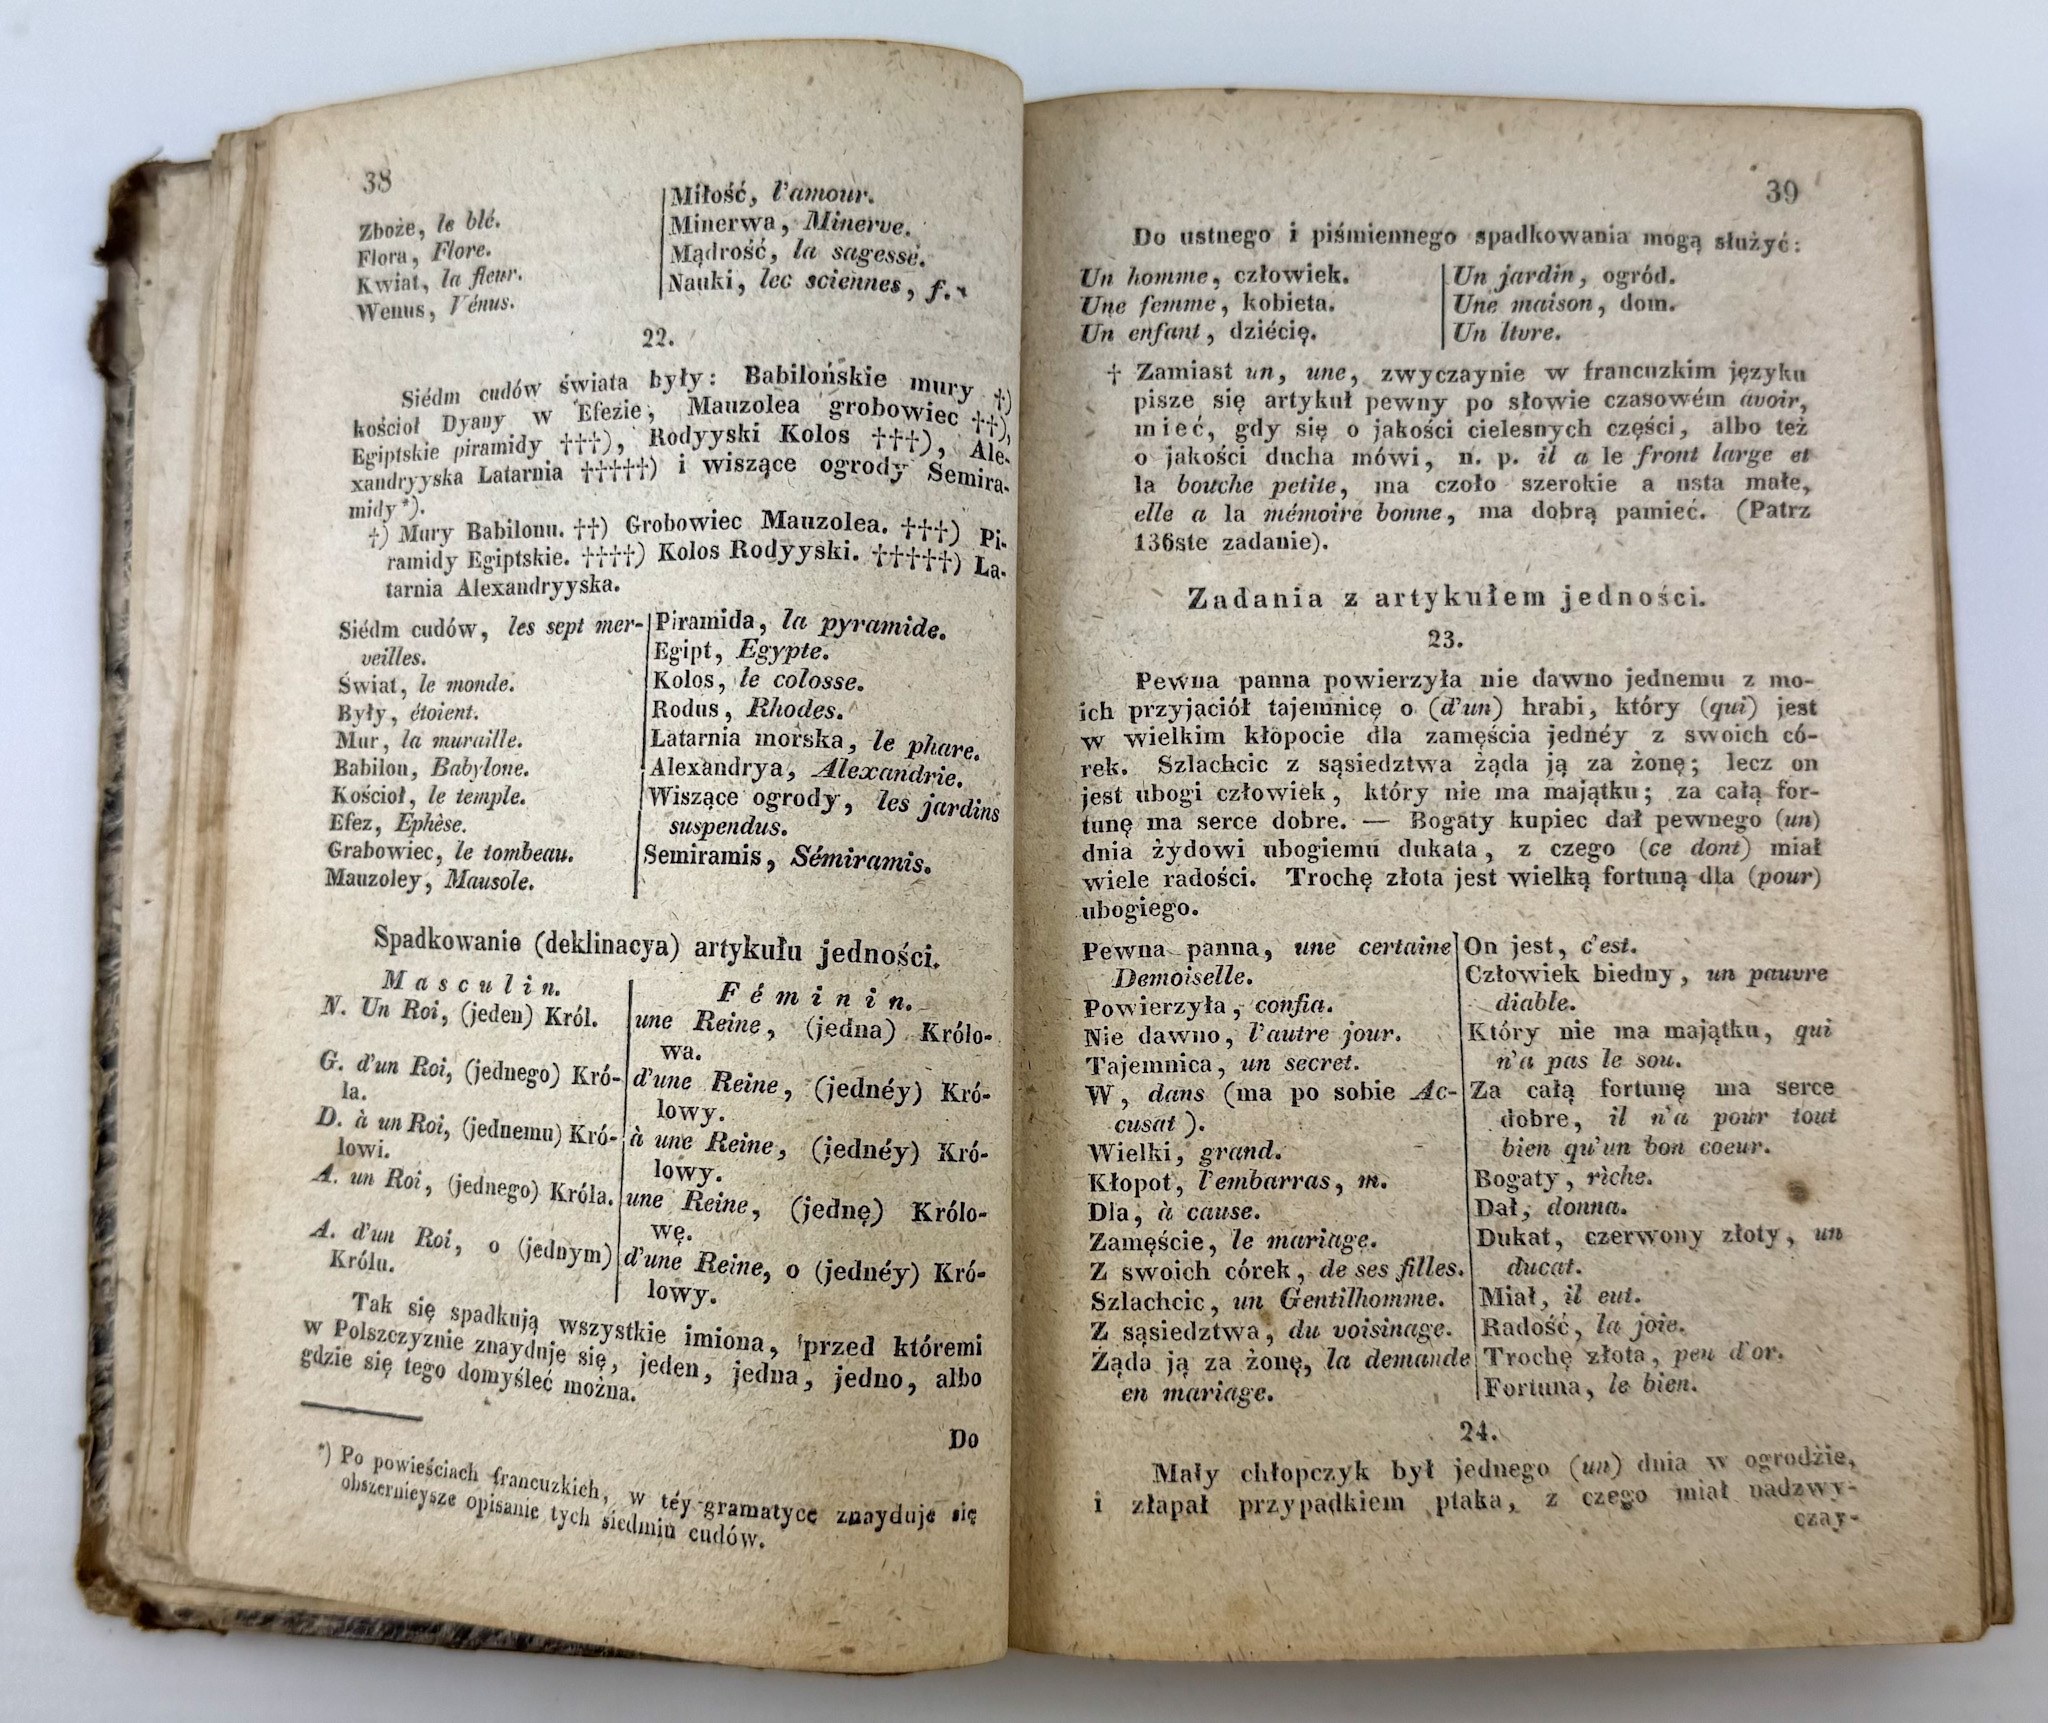 38
Zboże, le blé.
Flora, Flore.
Kwiat, la fleur.
Wenus, Vénus.
Miłość, l'amour.
Minerwa, Minerve.
Mądrość, la sagesse.
Nauki, lec sciennes, f.
22.
Siédm cudów świata były: Babilońskie mury †)
kościoł Dyany w Efezie, Mauzolea grobowiec ††),
Egiptskie piramidy †††), Rodyyski Kolos †††), Ale-
xandryyska Latarnia †††††) i wiszące ogrody Semira-
midy *).
†) Mury Babilonu. ††) Grobowiec Mauzolea. †††) Pi-
ramidy Egiptskie. ††††) Kolos Rodyyski. †††††) La-
tarnia Alexandryyska.
Siédm cudów, les sept mer-
veilles.
Świat, le monde.
Były, étoient.
Mur, la muraille.
Babilon, Babylone.
Kościoł, le temple.
Efez, Ephèse.
Grabowiec, le tombeau.
Mauzoley, Mausole.
Piramida, la pyramide.
Egipt, Egypte.
Kolos, le colosse.
Rodus, Rhodes.
Latarnia morska, le phare.
Alexandrya, Alexandrie.
Wiszące ogrody, les jardins
suspendus.
Semiramis, Sémiramis.
Spadkowanie (deklinacya) artykułu jedności.
Masculin.
N. Un Roi, (jeden) Król.
G. d'un Roi, (jednego) Kró-
la.
D. à un Roi, (jednemu) Kró-
lowi.
A. un Roi, (jednego) Króla.
A. d'un Roi, o (jednym)
Królu.
Féminin.
une Reine, (jedna) Królo-
wa.
d'une Reine, (jednéy) Kró-
lowy.
à une Reine, (jednéy) Kró-
lowy.
une Reine, (jednę) Królo-
wę.
d'une Reine, o (jednéy) Kró-
lowy.
Tak się spadkują wszystkie imiona, przed któremi
w Polszczyznie znayduje się, jeden, jedna, jedno, albo
gdzie się tego domyśleć można.
Do
*) Po powieściach francuzkich, w téy gramatyce znayduje się
obszernieysze opisanie tych siedmiu cudów.
39
Do ustnego i piśmiennego spadkowania mogą służyć:
Un homme, człowiek.
Une femme, kobieta.
Un enfant, dziécię.
Un jardin, ogród.
Une maison, dom.
Un livre.
† Zamiast un, une, zwyczaynie w francuzkim języku
pisze się artykuł pewny po słowie czasowém avoir,
mieć, gdy się o jakości cielesnych części, albo też
o jakości ducha mówi, n. p. il a le front large et
la bouche petite, ma czoło szerokie a usta małe,
elle a la mémoire bonne, ma dobrą pamieć. (Patrz
136ste zadanie).
Zadania z artykułem jedności.
23.
Pewna panna powierzyła nie dawno jednemu z mo-
ich przyjaciół tajemnicę o (d'un) hrabi, który (qui) jest
w wielkim kłopocie dla zamęścia jednéy z swoich có-
rek. Szlachcic z sąsiedztwa żąda ją za żonę; lecz on
jest ubogi człowiek, który nie ma majątku; za całą for-
tunę ma serce dobre. — Bogaty kupiec dał pewnego (un)
dnia żydowi ubogiemu dukata, z czego (ce dont) miał
wiele radości. Trochę złota jest wielką fortuną dla (pour)
ubogiego.
Pewna panna, une certaine
Demoiselle.
Powierzyła, confia.
Nie dawno, l'autre jour.
Tajemnica, un secret.
W, dans (ma po sobie Ac-
cusat).
Wielki, grand.
Kłopot, l'embarras, m.
Dla, à cause.
Zamęście, le mariage.
Z swoich córek, de ses filles.
Szlachcic, un Gentilhomme.
Z sąsiedztwa, du voisinage.
Żąda ją za żonę, la demande
en mariage.
On jest, c'est.
Człowiek biedny, un pauvre
diable.
Który nie ma majątku, qui
n'a pas le sou.
Za całą fortunę ma serce
dobre, il n'a pour tout
bien qu'un bon coeur.
Bogaty, riche.
Dał, donna.
Dukat, czerwony złoty, un
ducat.
Miał, il eut.
Radość, la joie.
Trochę złota, peu d'or.
Fortuna, le bien.
24.
Mały chłopczyk był jednego (un) dnia w ogrodzie,
i złapał przypadkiem ptaka, z czego miał nadzwy-
czay-